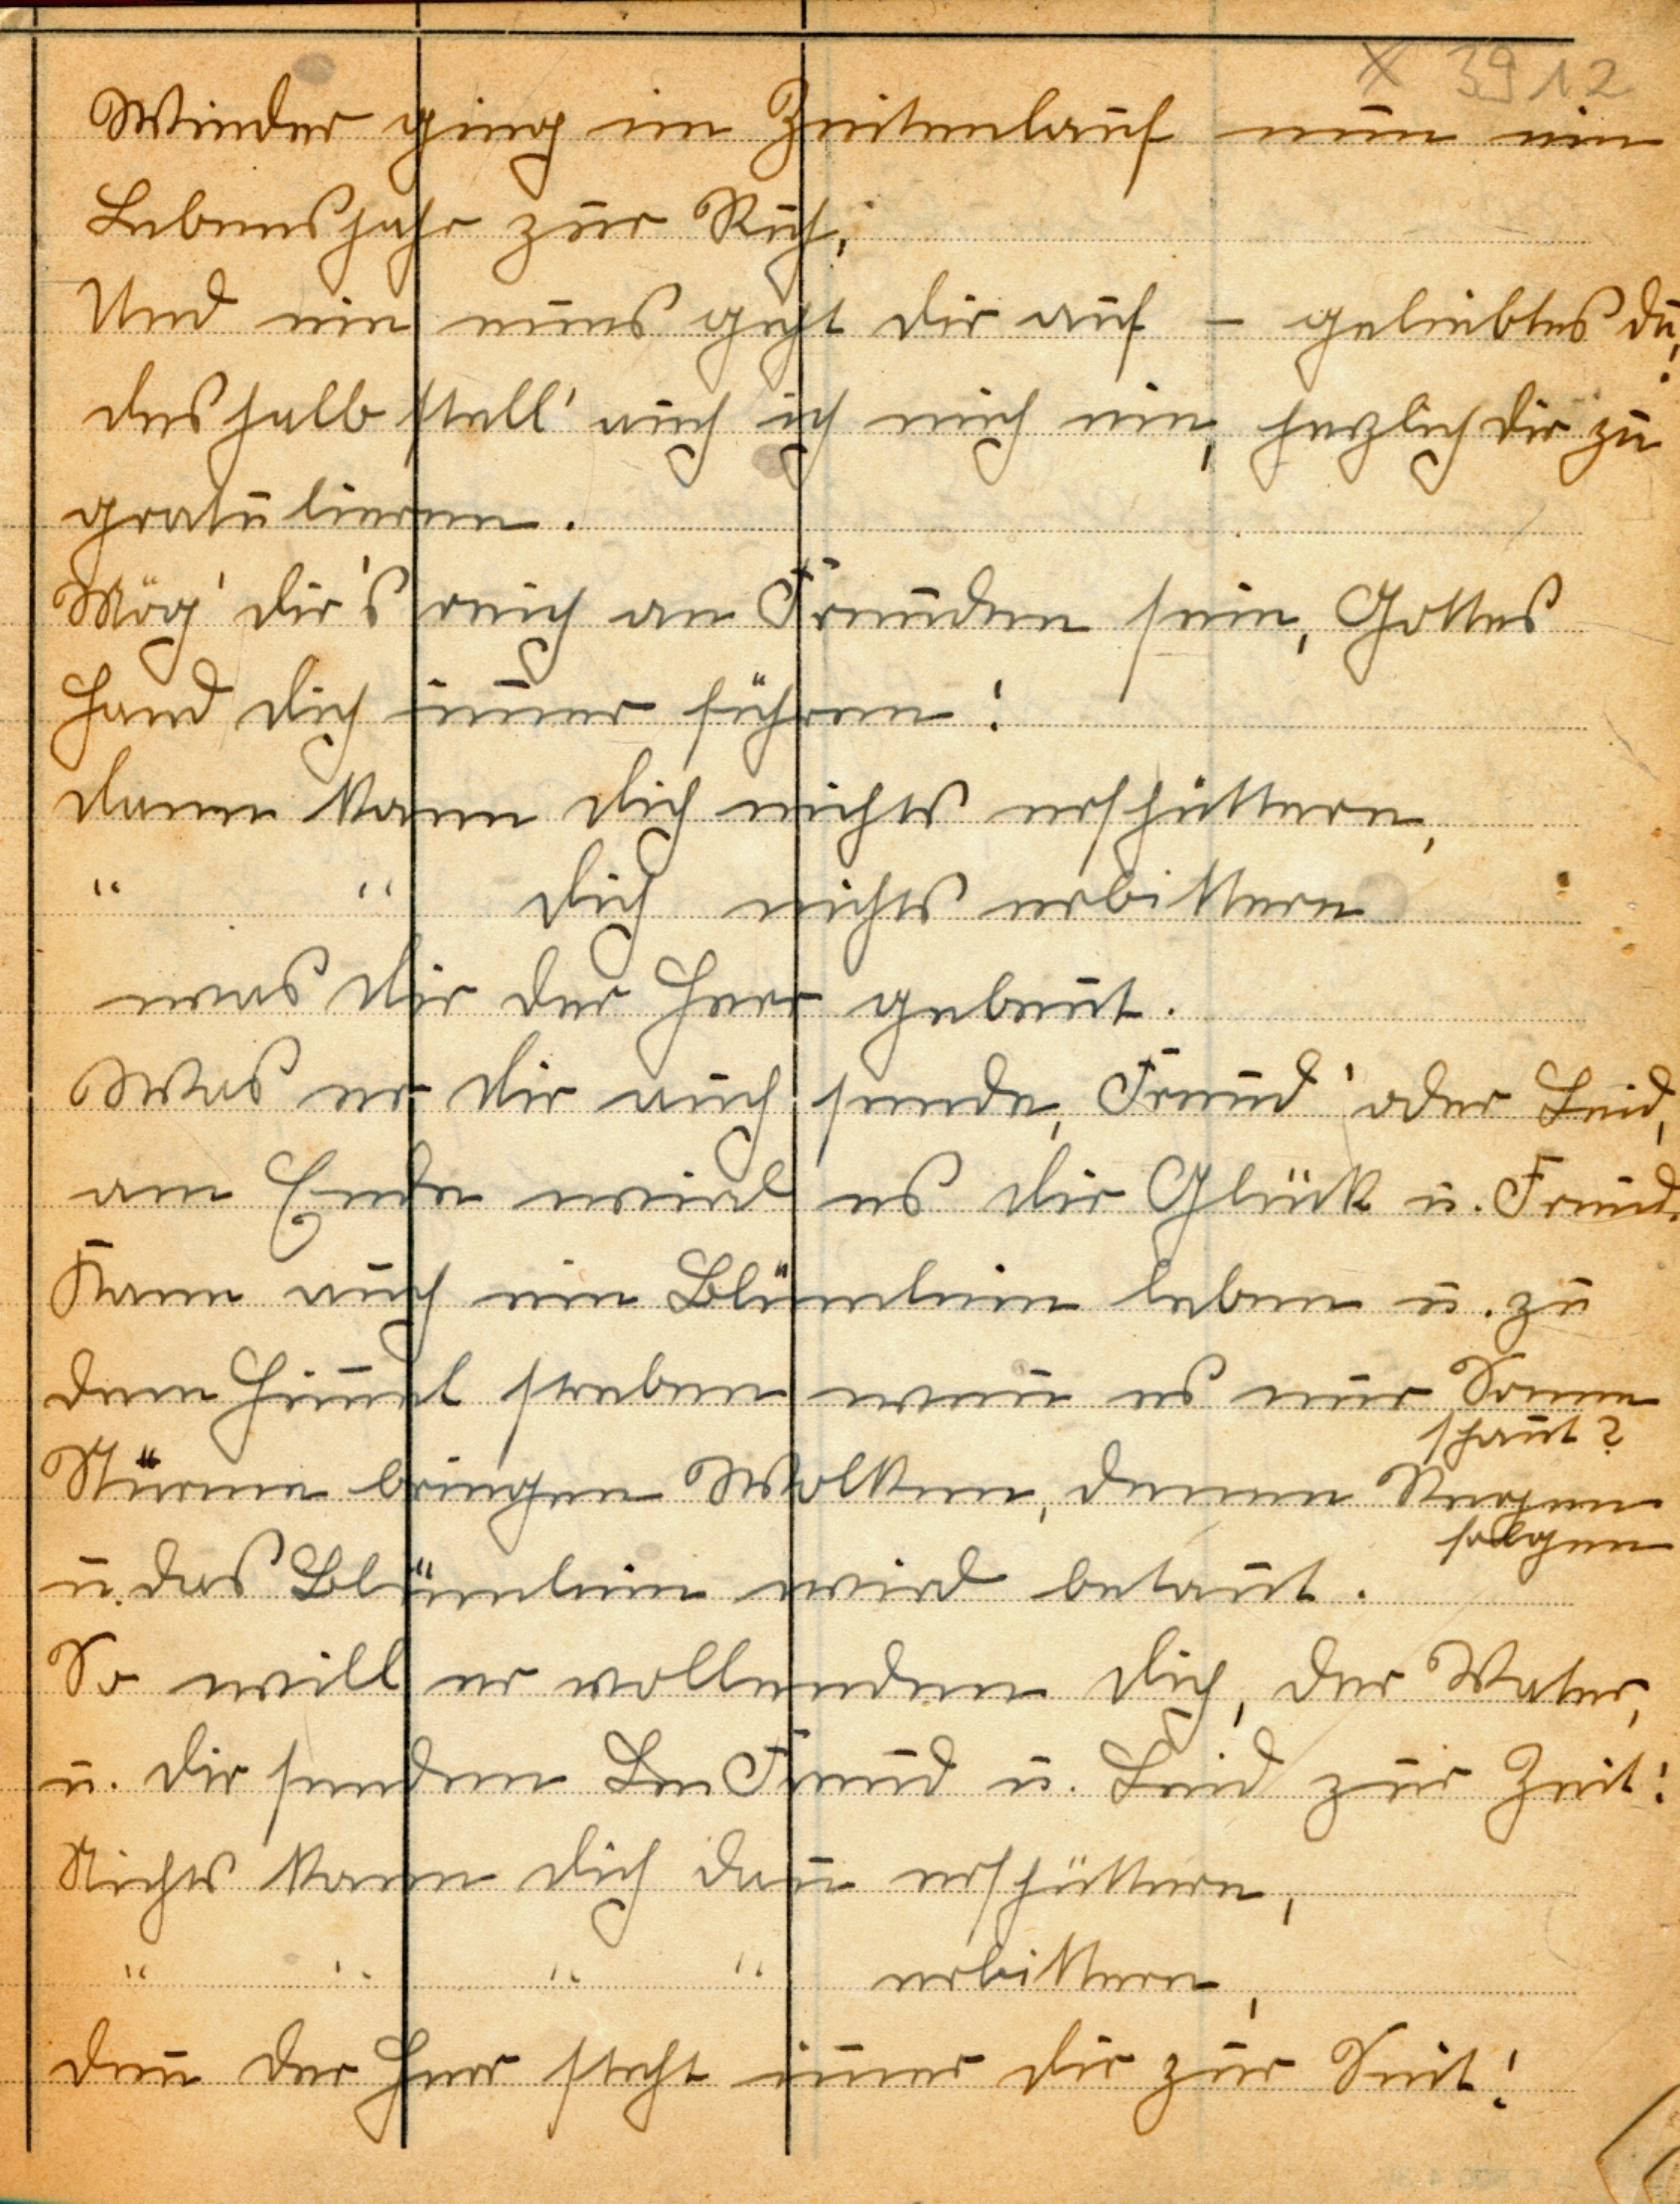 X 3912
Wieder ging im Zeitenlauf nun ein
Lebensjahr zur Ruh,
Und ein neues geht dir auf – geliebtes du!
deshalb stell' auch ich mich ein, herzlich dir zu
gratulieren.
Mög' dir's reich an Freuden sein, Gottes
Hand dich im̅er führen!
dann kann dich nichts erschüttern,
" " dich nichts erbittern
was dir der Herr gebeut.
Was er dir auch sende, Freud' oder Leid,
am Ende wird es dir Glück u. Freud.
Kann auch ein Blümlein leben u. zu
dem Him̅el streben wen̅ es nur Sonne
schaut?
Stürme bringen Wolken, denen Regen
folgen
u. das Blümlein wird betaut.
So will er vollenden dich, der Vater,
u. dir senden Freud u. Leid zur Zeit:
Nichts kann dich dan̅ erschüttern,
" " " " erbittern,
den̅ der Herr steht im̅er dir zur Seit!